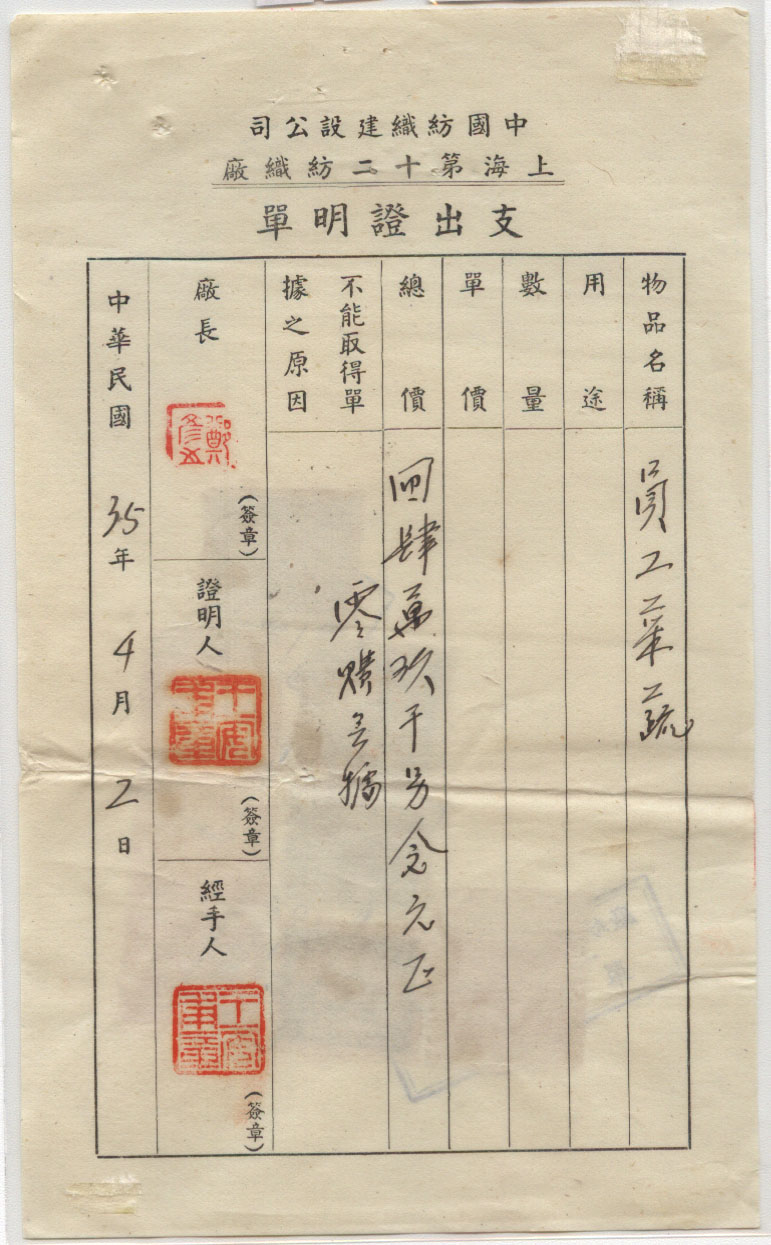 中國紡織建設公司
上海第十二紡織廠
支出證明單
物品名稱
員工菜蔬
用途
數量
單價
總價
肆萬玖千另念元正
不能取得單
據之原因
零購無據
廠長
鄭彥之
(簽章)
證明人
(簽章)
經手人
(簽章)
中華民國 35年 4月 2日